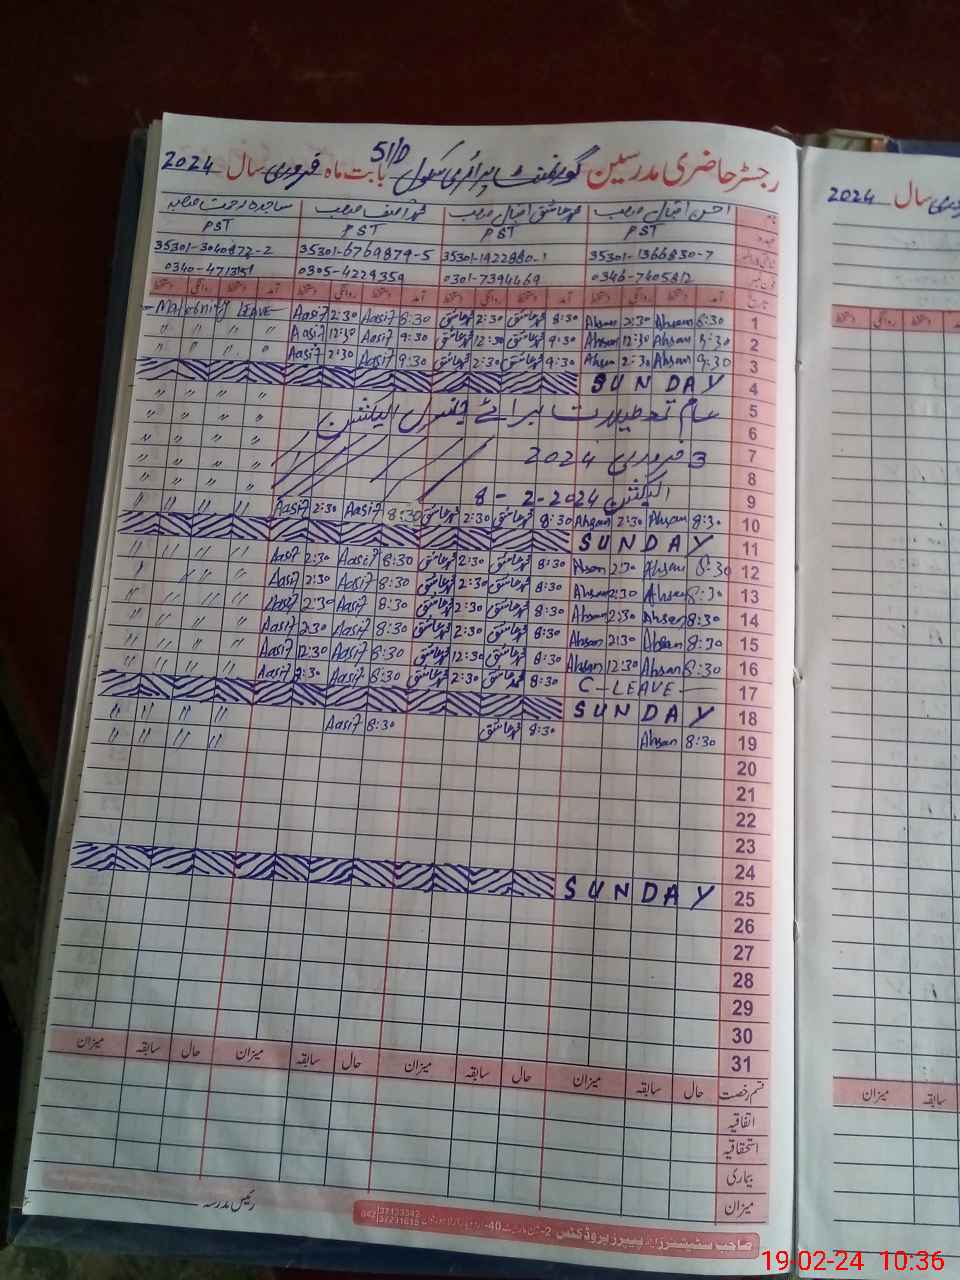 رجسٹر حاضری مدرسین گورنمنٹ پرائمری سکول 51/D بابت ماہ فروری سال 2024
نام احسن اقبال صاحب محمد عاشق اقبال صاحب محمد آصف صاحب ساجدہ رحمت صاحبہ
عہدہ PST PST PST PST
35301-1366830-7 35301-1422880-1 35301-6769879-5 35301-3040872-2
فون نمبر 0346-7405812 0301-7394469 0305-4229359 0340-4713151
تاریخ آمد دستخط روانگی دستخط آمد دستخط روانگی دستخط آمد دستخط روانگی دستخط آمد دستخط روانگی دستخط
1 8:30 Ahsan 2:30 Ahsan 8:30 محمد عاشق 2:30 محمد عاشق 8:30 Aasif 2:30 Aasif LEAVE
2 9:30 Ahsan 12:30 Ahsan 9:30 محمد عاشق 12:30 محمد عاشق 9:30 Aasif 12:30 Aasif " " " "
3 9:30 Ahsan 2:30 Ahsan 9:30 محمد عاشق 2:30 محمد عاشق 9:30 Aasif 2:30 Aasif " " " "
4 SUNDAY
5 " " " "
6 جنرل الیکشن " " " "
7 3 فروری 2024 " " " "
8 " " " "
9 الیکشن 8-2-2024 " " " "
10 8:30 Ahsan 2:30 Ahsan 8:30 محمد عاشق 2:30 محمد عاشق 8:30 Aasif 2:30 Aasif " " " "
11 SUNDAY
12 8:30 Ahsan 2:30 Ahsan 8:30 محمد عاشق 2:30 محمد عاشق 8:30 Aasif 2:30 Aasif " " " "
13 8:30 Ahsan 2:30 Ahsan 8:30 محمد عاشق 2:30 محمد عاشق 8:30 Aasif 2:30 Aasif " " " "
14 8:30 Ahsan 2:30 Ahsan 8:30 محمد عاشق 2:30 محمد عاشق 8:30 Aasif 2:30 Aasif " " " "
15 8:30 Ahsan 2:30 Ahsan 8:30 محمد عاشق 2:30 محمد عاشق 8:30 Aasif 2:30 Aasif " " " "
16 8:30 Ahsan 12:30 Ahsan 8:30 محمد عاشق 12:30 محمد عاشق 8:30 Aasif 12:30 Aasif " " " "
17 C-LEAVE 8:30 محمد عاشق 2:30 محمد عاشق 8:30 Aasif 2:30 Aasif " " " "
18 SUNDAY
19 8:30 Ahsan 8:30 محمد عاشق 8:30 Aasif " " " "
20
21
22
23
24
25 SUNDAY
26
27
28
29
30
31
قسم رخصت حال سابقہ میزان حال سابقہ میزان حال سابقہ میزان حال سابقہ میزان
اتفاقیہ
استحقاقیہ
بیماری
میزان
رئیس مدرسہ
صاحب سٹیشنرز اینڈ پیپرز پروڈکٹس
فروری سال 2024
میزان سابقہ
19-02-24 10:36